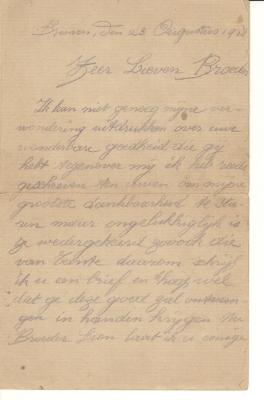 den 23 Augustus 19
Zeer Lieven Broeder
Ik kan niet genoeg mijne ver-
wondering uitdrukken over uwe
wonderbare goedheid die gij
hebt tegenover mij ik heb reeds
geschreven ten uwen om mijne
grootste dankbaarheid te stu-
ren maar ongelukkiglijk is
ze wedergekeerd
van daarom schrijf
ik u een brief en hoop wel
dat ge deze goed zal ontvan-
gen in handen krijgen
Broeder Leon laat ik u eenige